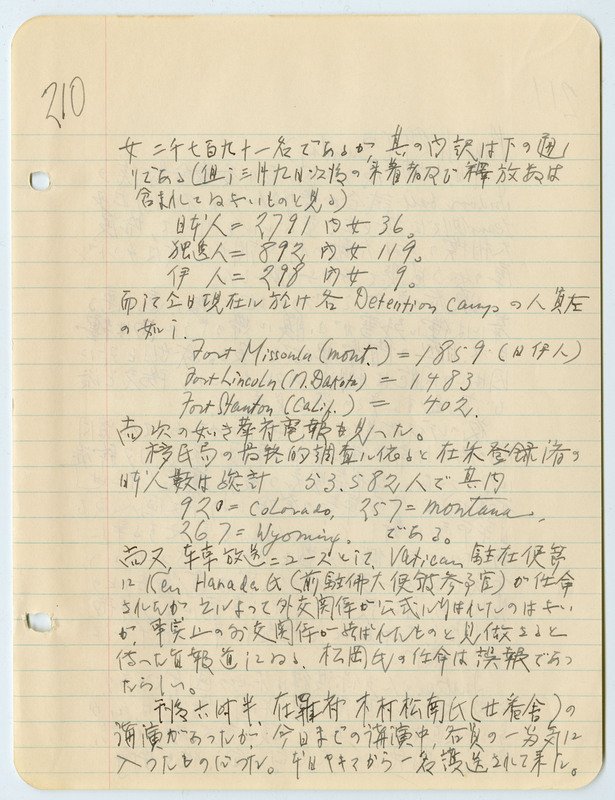 210
女二千七百九十一名であるが、其の内訳は下の通
りである(但し三月九日以後の来着者及び釋放数は
含まれてゐないものと見る)
日本人=2791 内女36。
独逸人=892 内女119。
伊 人=298 内女 9。
而して今日現在に於ける各Detention Campの人員左
の如し.
Fort Missoula (Mont.) = 1859 (日伊人)
Fort Lincoln (N. Dakota) = 1483
Fort Stanton (Calif.) = 402.
尚次の如き華府電報を見った。
移民局の最終的調査に依ると在米登録済の
日本人数は総計 53.582人で其内
920=Colorado, 257=Montana,
267=Wyoming, である。
尚又、東京放送ニュースとして、Vatican駐在使節
に Ken Harada氏(前駐佛大使館参事官)が任命
されたが之によって外交関係が公式に結ばれたのはない
が、事実上の外交関係が結ばれたものと見做さると
傳った旨報道してゐる、松岡氏の任命は誤報であっ
たらしい。
午後六時半、在羅府 木村松南氏(廿番舎)の
講演があったが、今日までの講演中、各員の一番気に
入ったものだった。本日ヤキマから一名護送されて来た。